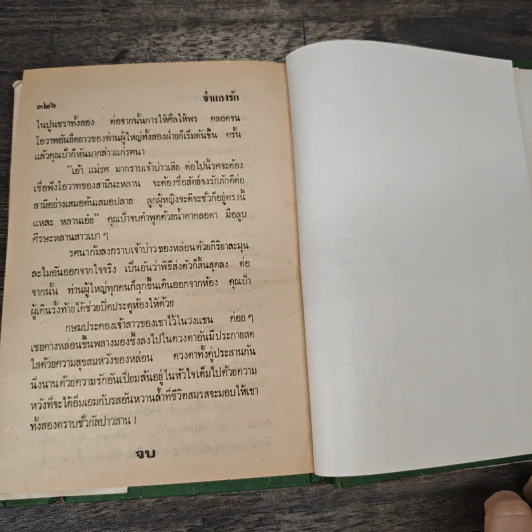 ๓๒๖
จำแลงรัก
ในปูนชราทั้งสอง ต่อจากนั้นการให้ศีลให้พร ตลอดจน
โอวาทอันยืดยาวของท่านผู้ใหญ่ทั้งสองฝ่ายก็เริ่มต้นขึ้น ครั้น
แล้วคุณป้าก็หันมากล่าวแก่รศนา
"เอ้า แม่รศ มากราบเจ้าบ่าวเสีย ต่อไปนี้รศจะต้อง
เชื่อฟังโอวาทของสามีนะหลาน จะต้องซื่อสัตย์จงรักภักดีต่อ
สามีอย่างเสมอต้นเสมอปลาย ลูกผู้หญิงจะดีจะชั่วก็อยู่ตรงนี้
แหละ หลานเอ๋ย" คุณป้าจบคำพูดด้วยน้ำตาคลอตา มือลูบ
ศีรษะหลานสาวเบา ๆ
รศนาก้มลงกราบเจ้าบ่าวของหล่อนด้วยกิริยาละมุน
ละไมอันออกจากใจจริง เป็นอันว่าพิธีส่งตัวก็สิ้นสุดลง ต่อ
จากนั้น ท่านผู้ใหญ่ทุกคนก็ลุกขึ้นเดินออกจากห้อง คุณป้า
ผู้เดินรั้งท้ายได้ช่วยปิดประตูห้องให้ด้วย
กษมประคองเจ้าสาวของเขาไว้ในวงแขน ค่อย ๆ
เชยคางหล่อนขึ้นพลางมองซึ้งลงไปในดวงตาอันมีประกายสด
ใสด้วยความสุขสมหวังของหล่อน ดวงตาทั้งคู่ประสานกัน
นิ่งนานด้วยความรักอันเปี่ยมล้นอยู่ในหัวใจเต็มไปด้วยความ
หวังที่จะได้อิ่มเอมกับรสอันหวานล้ำที่ชีวิตสมรสจะมอบให้เขา
ทั้งสองตราบชั่วกัลปาวสาน !
จบ